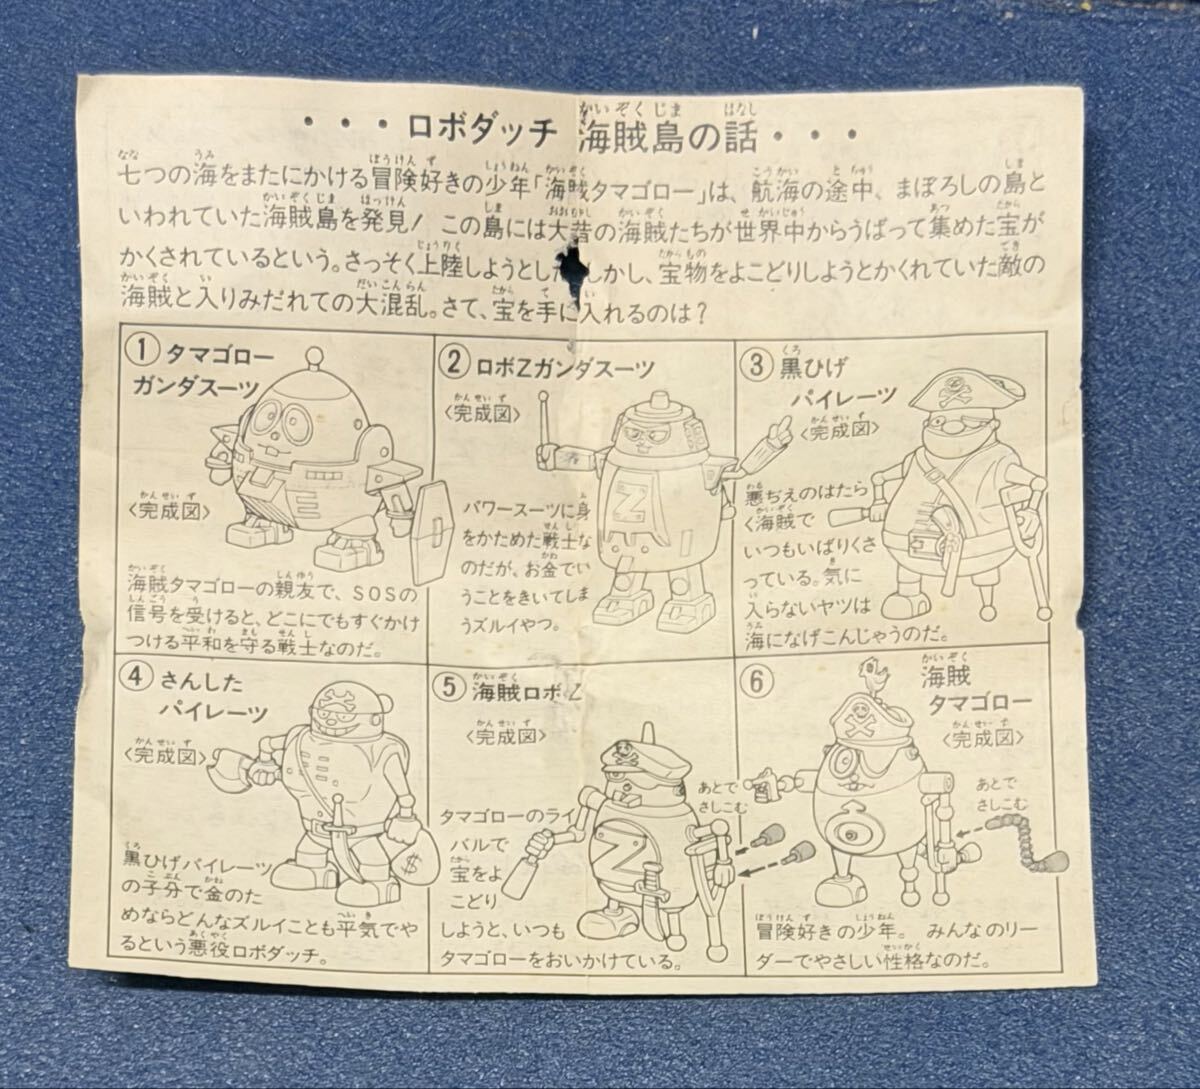 ・・・ロボダッチ 海賊島の話・・・
七つの海をまたにかける冒険好きの少年「海賊タマゴロー」は、航海の途中、まぼろしの島と
いわれていた海賊島を発見！ この島には大昔の海賊たちが世界中からうばって集めた宝が
かくされているという。さっそく上陸しようとした しかし、宝物をよこどりしようとかくれていた敵の
海賊と入りみだれての大混乱。さて、宝を手に入れるのは？
① タマゴロー
ガンダスーツ
〈完成図〉
海賊タマゴローの親友で、SOSの
信号を受けると、どこにでもすぐかけ
つける平和を守る戦士なのだ。
② ロボZガンダスーツ
〈完成図〉
Z
パワースーツに身
をかためた戦士な
のだが、お金でい
うことをきいてしま
うズルイやつ。
③ 黒ひげ
パイレーツ
〈完成図〉
悪ぢえのはたら
く海賊で
いつもいばりくさ
っている。気に
入らないヤツは
海になげこんじゃうのだ。
④ さんした
パイレーツ
〈完成図〉
$
黒ひげパイレーツ
の子分で金のた
めならどんなズルイことも平気でや
るという悪役ロボダッチ。
⑤ 海賊ロボZ
〈完成図〉
Z
あとで
さしこむ
タマゴローのライ
バルで
宝をよ
こどり
しようと、いつも
タマゴローをおいかけている。
⑥ 海賊
タマゴロー
〈完成図〉
あとで
さしこむ
冒険好きの少年。みんなのリー
ダーでやさしい性格なのだ。